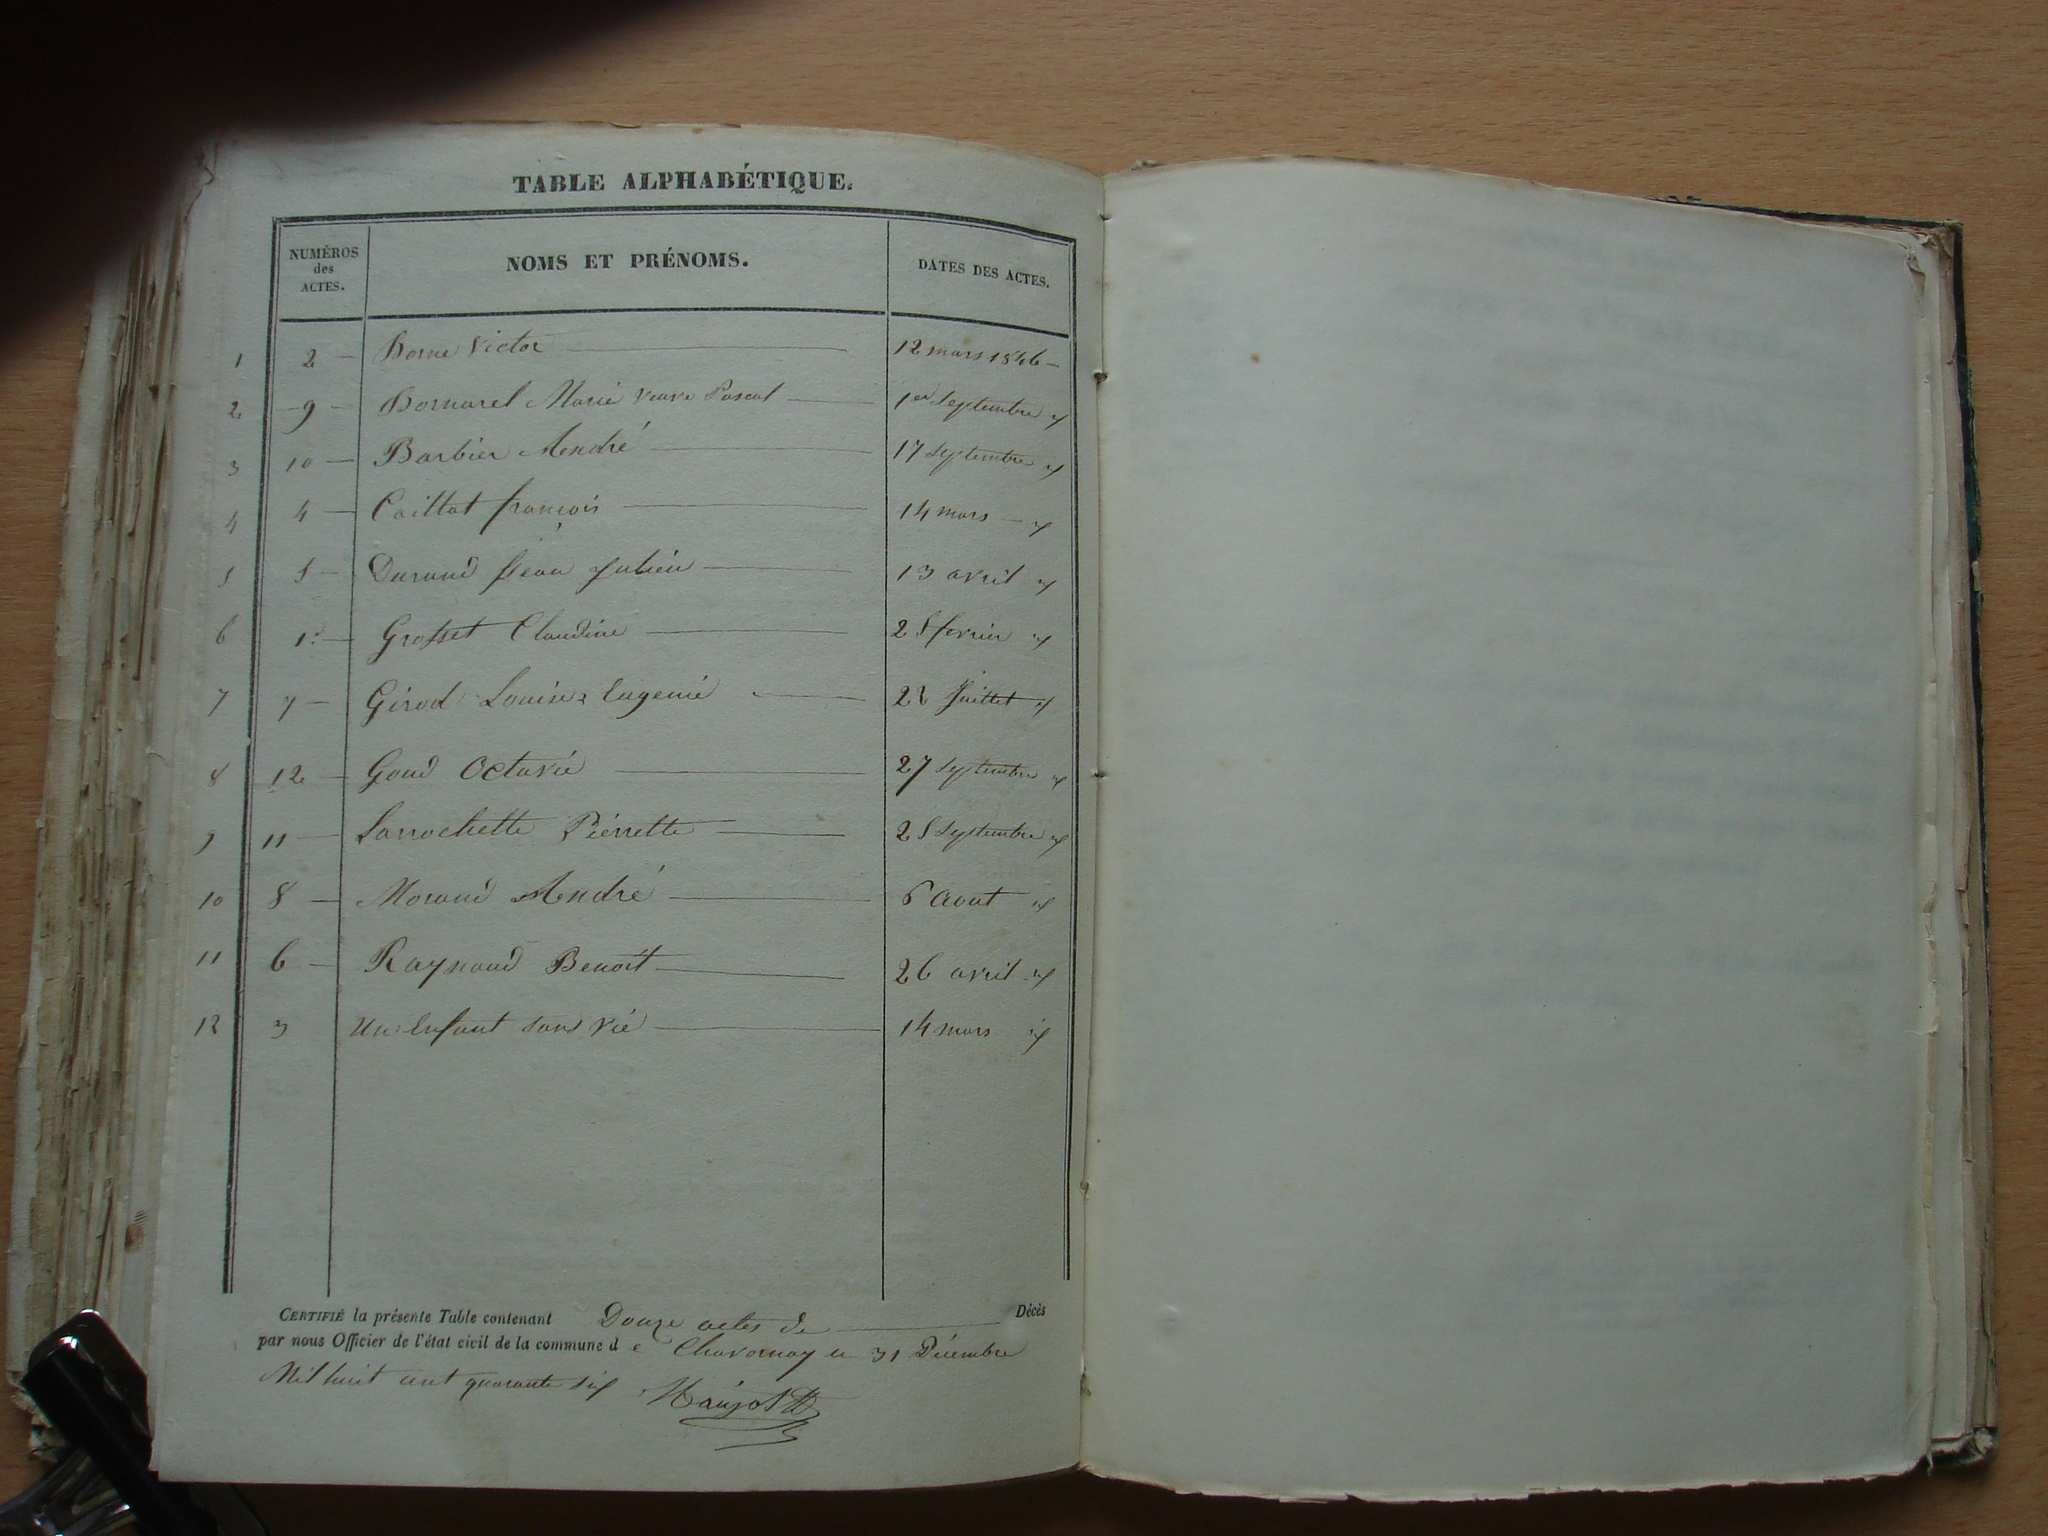 TABLE ALPHABÉTIQUE.
NUMÉROS des ACTES. NOMS ET PRÉNOMS. DATES DES ACTES.
1 2 — Borne Victor — 12 mars 1846 —
2 — 9 — Bornarel Marie veuve Pascal — 1er Septembre id
3 10 — Barbier André — 17 Septembre id
4 4 — Caillat françois — 14 mars — id
5 5 — Durand Jean Julien — 13 avril id
6 1. — Grosset Claudine — 25 fevrier id
7 7 — Girod Louise Eugenie — Juillet id
8 12 — Goud Octavie — 27 Septembre id
9 11 — Larrochette Pierrette — 25 Septembre id
10 8 — Morand André — 6 Aout id
11 6 — Raynaud Benoit — 26 avril id
12 3 Un Enfant sans vie — 14 mars id
CERTIFIÉ la présente Table contenant Douze actes de — Décès
par nous Officier de l'état civil de la commune de Chavornay le 31 Décembre
Mil huit cent quarante six